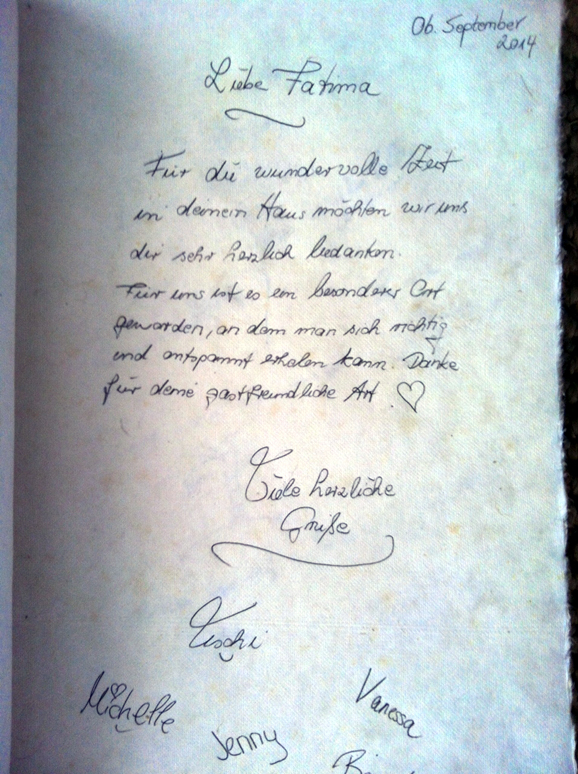 06. September
2014
Liebe Fatima
Für die wundervolle Zeit
in deinem Haus möchten wir uns
dir sehr herzlich bedanken.
Für uns ist es ein besonderer Ort
geworden, an dem man sich richtig
und entspannt erholen kann. Danke
für deine gastfreundliche Art ♡
Viele herzliche
Grüße
Michelle
Vanessa
Jenny